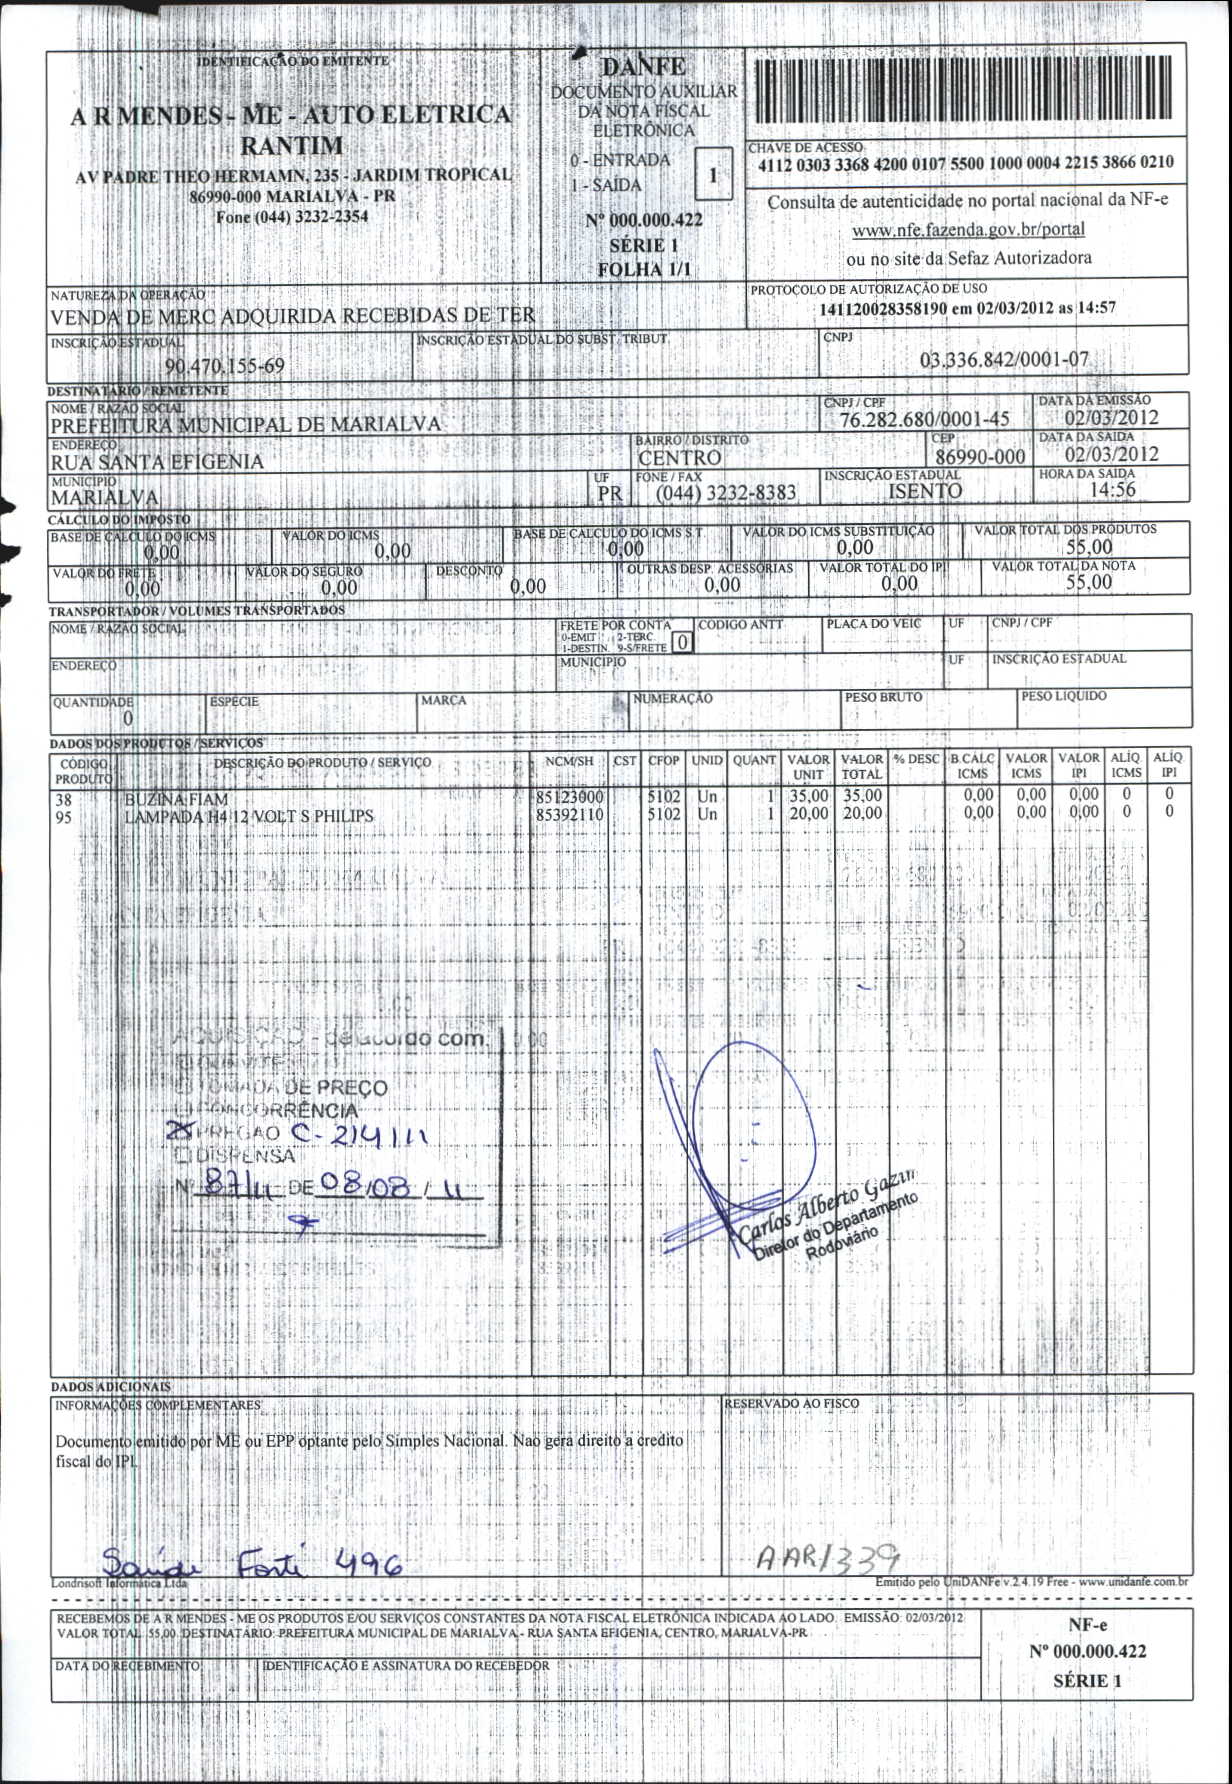 IDENTIFICAÇÃO DO EMITENTE
A R MENDES - ME - AUTO ELETRICA
RANTIM
AV PADRE THEO HERMAMN, 235 - JARDIM TROPICAL
86990-000 MARIALVA - PR
Fone (044) 3232-2354
DANFE
DOCUMENTO AUXILIAR
DA NOTA FISCAL
ELETRÔNICA
0 - ENTRADA
1 - SAÍDA
1
Nº 000.000.422
SÉRIE 1
FOLHA 1/1
CHAVE DE ACESSO
4112 0303 3368 4200 0107 5500 1000 0004 2215 3866 0210
Consulta de autenticidade no portal nacional da NF-e
www.nfe.fazenda.gov.br/portal
ou no site da Sefaz Autorizadora
NATUREZA DA OPERAÇÃO
VENDA DE MERC ADQUIRIDA RECEBIDAS DE TER
PROTOCOLO DE AUTORIZAÇÃO DE USO
141120028358190 em 02/03/2012 as 14:57
INSCRIÇÃO ESTADUAL
90.470.155-69
INSCRIÇÃO ESTADUAL DO SUBST. TRIBUT.
CNPJ
03.336.842/0001-07
DESTINATÁRIO / REMETENTE
NOME / RAZÃO SOCIAL
PREFEITURA MUNICIPAL DE MARIALVA
CNPJ / CPF
76.282.680/0001-45
DATA DA EMISSÃO
02/03/2012
ENDEREÇO
RUA SANTA EFIGENIA
BAIRRO / DISTRITO
CENTRO
CEP
86990-000
DATA DA SAÍDA
02/03/2012
MUNICÍPIO
MARIALVA
UF
PR
FONE / FAX
(044) 3232-8383
INSCRIÇÃO ESTADUAL
ISENTO
HORA DA SAÍDA
14:56
CÁLCULO DO IMPOSTO
BASE DE CÁLCULO DO ICMS
0,00
VALOR DO ICMS
0,00
BASE DE CÁLCULO DO ICMS S.T.
0,00
VALOR DO ICMS SUBSTITUIÇÃO
0,00
VALOR TOTAL DOS PRODUTOS
55,00
VALOR DO FRETE
0,00
VALOR DO SEGURO
0,00
DESCONTO
0,00
OUTRAS DESP. ACESSÓRIAS
0,00
VALOR TOTAL DO IPI
0,00
VALOR TOTAL DA NOTA
55,00
TRANSPORTADOR / VOLUMES TRANSPORTADOS
NOME / RAZÃO SOCIAL
FRETE POR CONTA
0-EMIT 2-TERC.
1-DESTIN. 9-S/FRETE
0
CÓDIGO ANTT
PLACA DO VEIC
UF
CNPJ / CPF
ENDEREÇO
MUNICÍPIO
UF
INSCRIÇÃO ESTADUAL
QUANTIDADE
0
ESPÉCIE
MARCA
NUMERAÇÃO
PESO BRUTO
PESO LÍQUIDO
DADOS DOS PRODUTOS / SERVIÇOS
CÓDIGO PRODUTO DESCRIÇÃO DO PRODUTO / SERVIÇO NCM/SH CST CFOP UNID QUANT VALOR UNIT VALOR TOTAL % DESC B.CÁLC ICMS VALOR ICMS VALOR IPI ALÍQ ICMS ALÍQ IPI
38 BUZINA FIAM 85123000 5102 Un 1 35,00 35,00 0,00 0,00 0,00 0 0
95 LAMPADA H4 12 VOLT S PHILIPS 85392110 5102 Un 1 20,00 20,00 0,00 0,00 0,00 0 0
AQUISIÇÃO - de acordo com:
CONVITE
TOMADA DE PREÇO
CONCORRÊNCIA
X PREGÃO C-214/11
DISPENSA
Nº 87/11 DE 08/08/11
Carlos Alberto Gazin
Diretor do Departamento
Rodoviário
DADOS ADICIONAIS
INFORMAÇÕES COMPLEMENTARES
Documento emitido por ME ou EPP optante pelo Simples Nacional. Nao gera direito a credito
fiscal do IPI.
RESERVADO AO FISCO
Saúde Forti 496
AAR1339
Londrisoft Informática Ltda
Emitido pelo UniDANFe v.2.4.19 Free - www.unidanfe.com.br
RECEBEMOS DE A R MENDES - ME OS PRODUTOS E/OU SERVIÇOS CONSTANTES DA NOTA FISCAL ELETRÔNICA INDICADA AO LADO. EMISSÃO: 02/03/2012
VALOR TOTAL: 55,00 DESTINATÁRIO: PREFEITURA MUNICIPAL DE MARIALVA - RUA SANTA EFIGENIA, CENTRO, MARIALVA-PR
DATA DO RECEBIMENTO
IDENTIFICAÇÃO E ASSINATURA DO RECEBEDOR
NF-e
Nº 000.000.422
SÉRIE 1